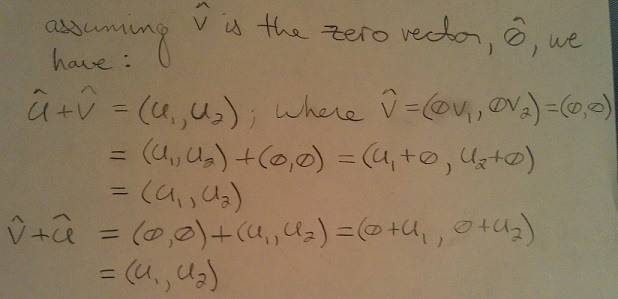 assuming v̂ is the zero vector, 0̂, we
have:
û+v̂ = (u₁, u₂); where v̂=(0v₁, 0v₂)=(0,0)
= (u₁, u₂)+(0,0) = (u₁+0, u₂+0)
= (u₁, u₂)
v̂+û = (0,0)+(u₁, u₂)=(0+u₁, 0+u₂)
= (u₁, u₂)